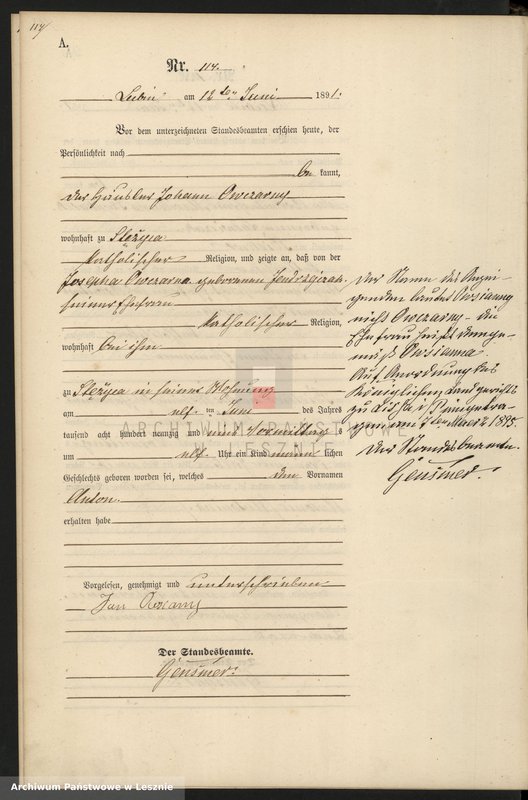 114
A.
Nr. 114.
Lubin am 12ten Juni 1891.
Vor dem unterzeichneten Standesbeamten erschien heute, der
Persönlichkeit nach
be kannt,
der Häusler Johann Owczarny
wohnhaft zu Stężyca
katholischer Religion, und zeigte an, daß von der
Josepha Owczarna geborenen
seiner Ehefrau
katholischer Religion,
wohnhaft bei ihm
zu Stężyca in seiner Wohnung
am elf ten Juni des Jahres
tausend acht hundert neunzig und eins Vormittag s
um elf Uhr ein Kind männ lichen
Geschlechts geboren worden sei, welches den Vornamen
Anton
erhalten habe
Vorgelesen, genehmigt und unterschrieben
Jan
Der Standesbeamte.
Gensmer.
Der Name des Anzei-
genden lautet
nicht Owczarny – die
Ehefrau heißt demge-
mäß
Auf Anordnung des
Königlichen Landgerichts
zu Lissa i/P eingetra-
gen am März 1895.
Der Standesbeamte.
Gensmer.
ARCHIWUM PAŃSTWOWE
W LESZNIE
Archiwum Państwowe w Lesznie